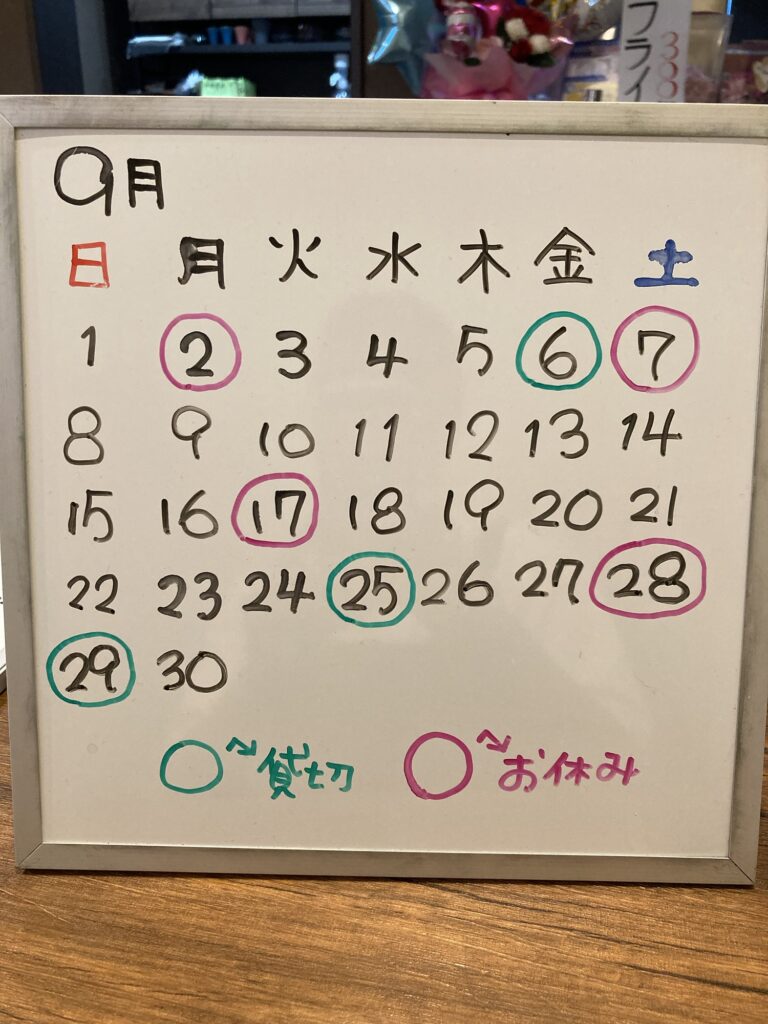 フライ
300
9月
日 月 火 水 木 金 土
1 2 3 4 5 6 7
8 9 10 11 12 13 14
15 16 17 18 19 20 21
22 23 24 25 26 27 28
29 30
○〜貸切 ○〜お休み